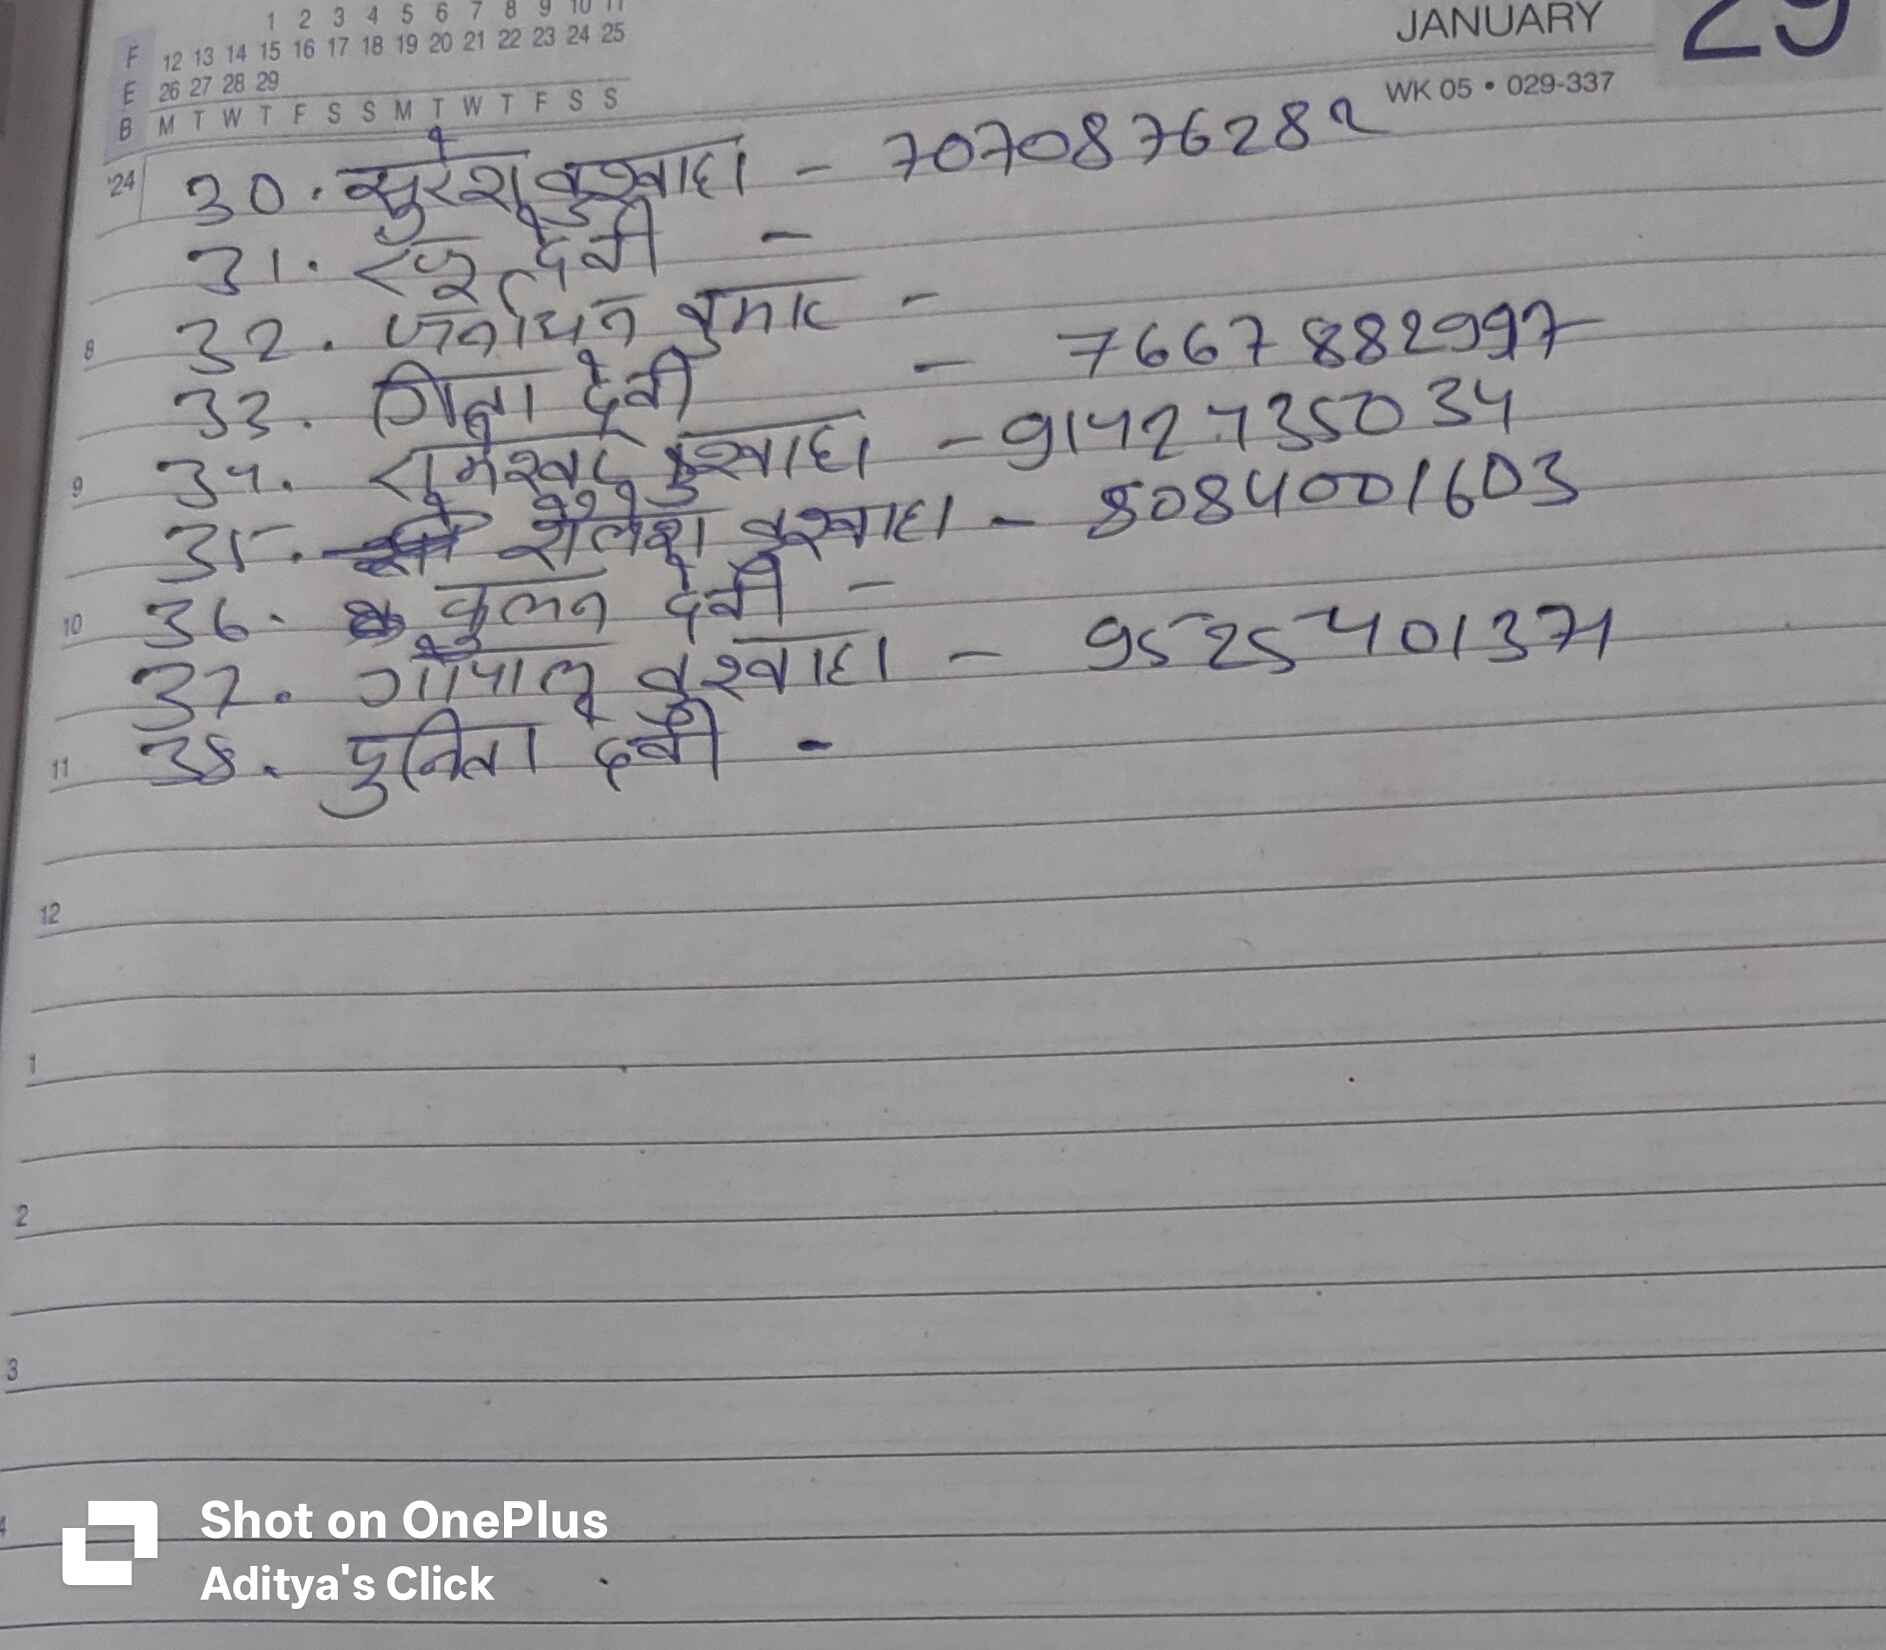 1 2 3 4 5 6 7 8 9 10 11
F 12 13 14 15 16 17 18 19 20 21 22 23 24 25
E 26 27 28 29
B M T W T F S S M T W T F S S
JANUARY 29
WK 05 • 029-337
'24 30. सुरेश कुश्वाहा - 7070876282
31. देवी -
8 32. कुमार -
33. गिता देवी - 7667882997
9 34. कुश्वाहा - 9142735034
35. शैलेश कुश्वाहा - 8084001603
10 36. फुलन देवी -
37. गोपाल कुश्वाहा - 9525401371
11 38. पुनिता देवी -
12
1
2
3
4
Shot on OnePlus
Aditya's Click